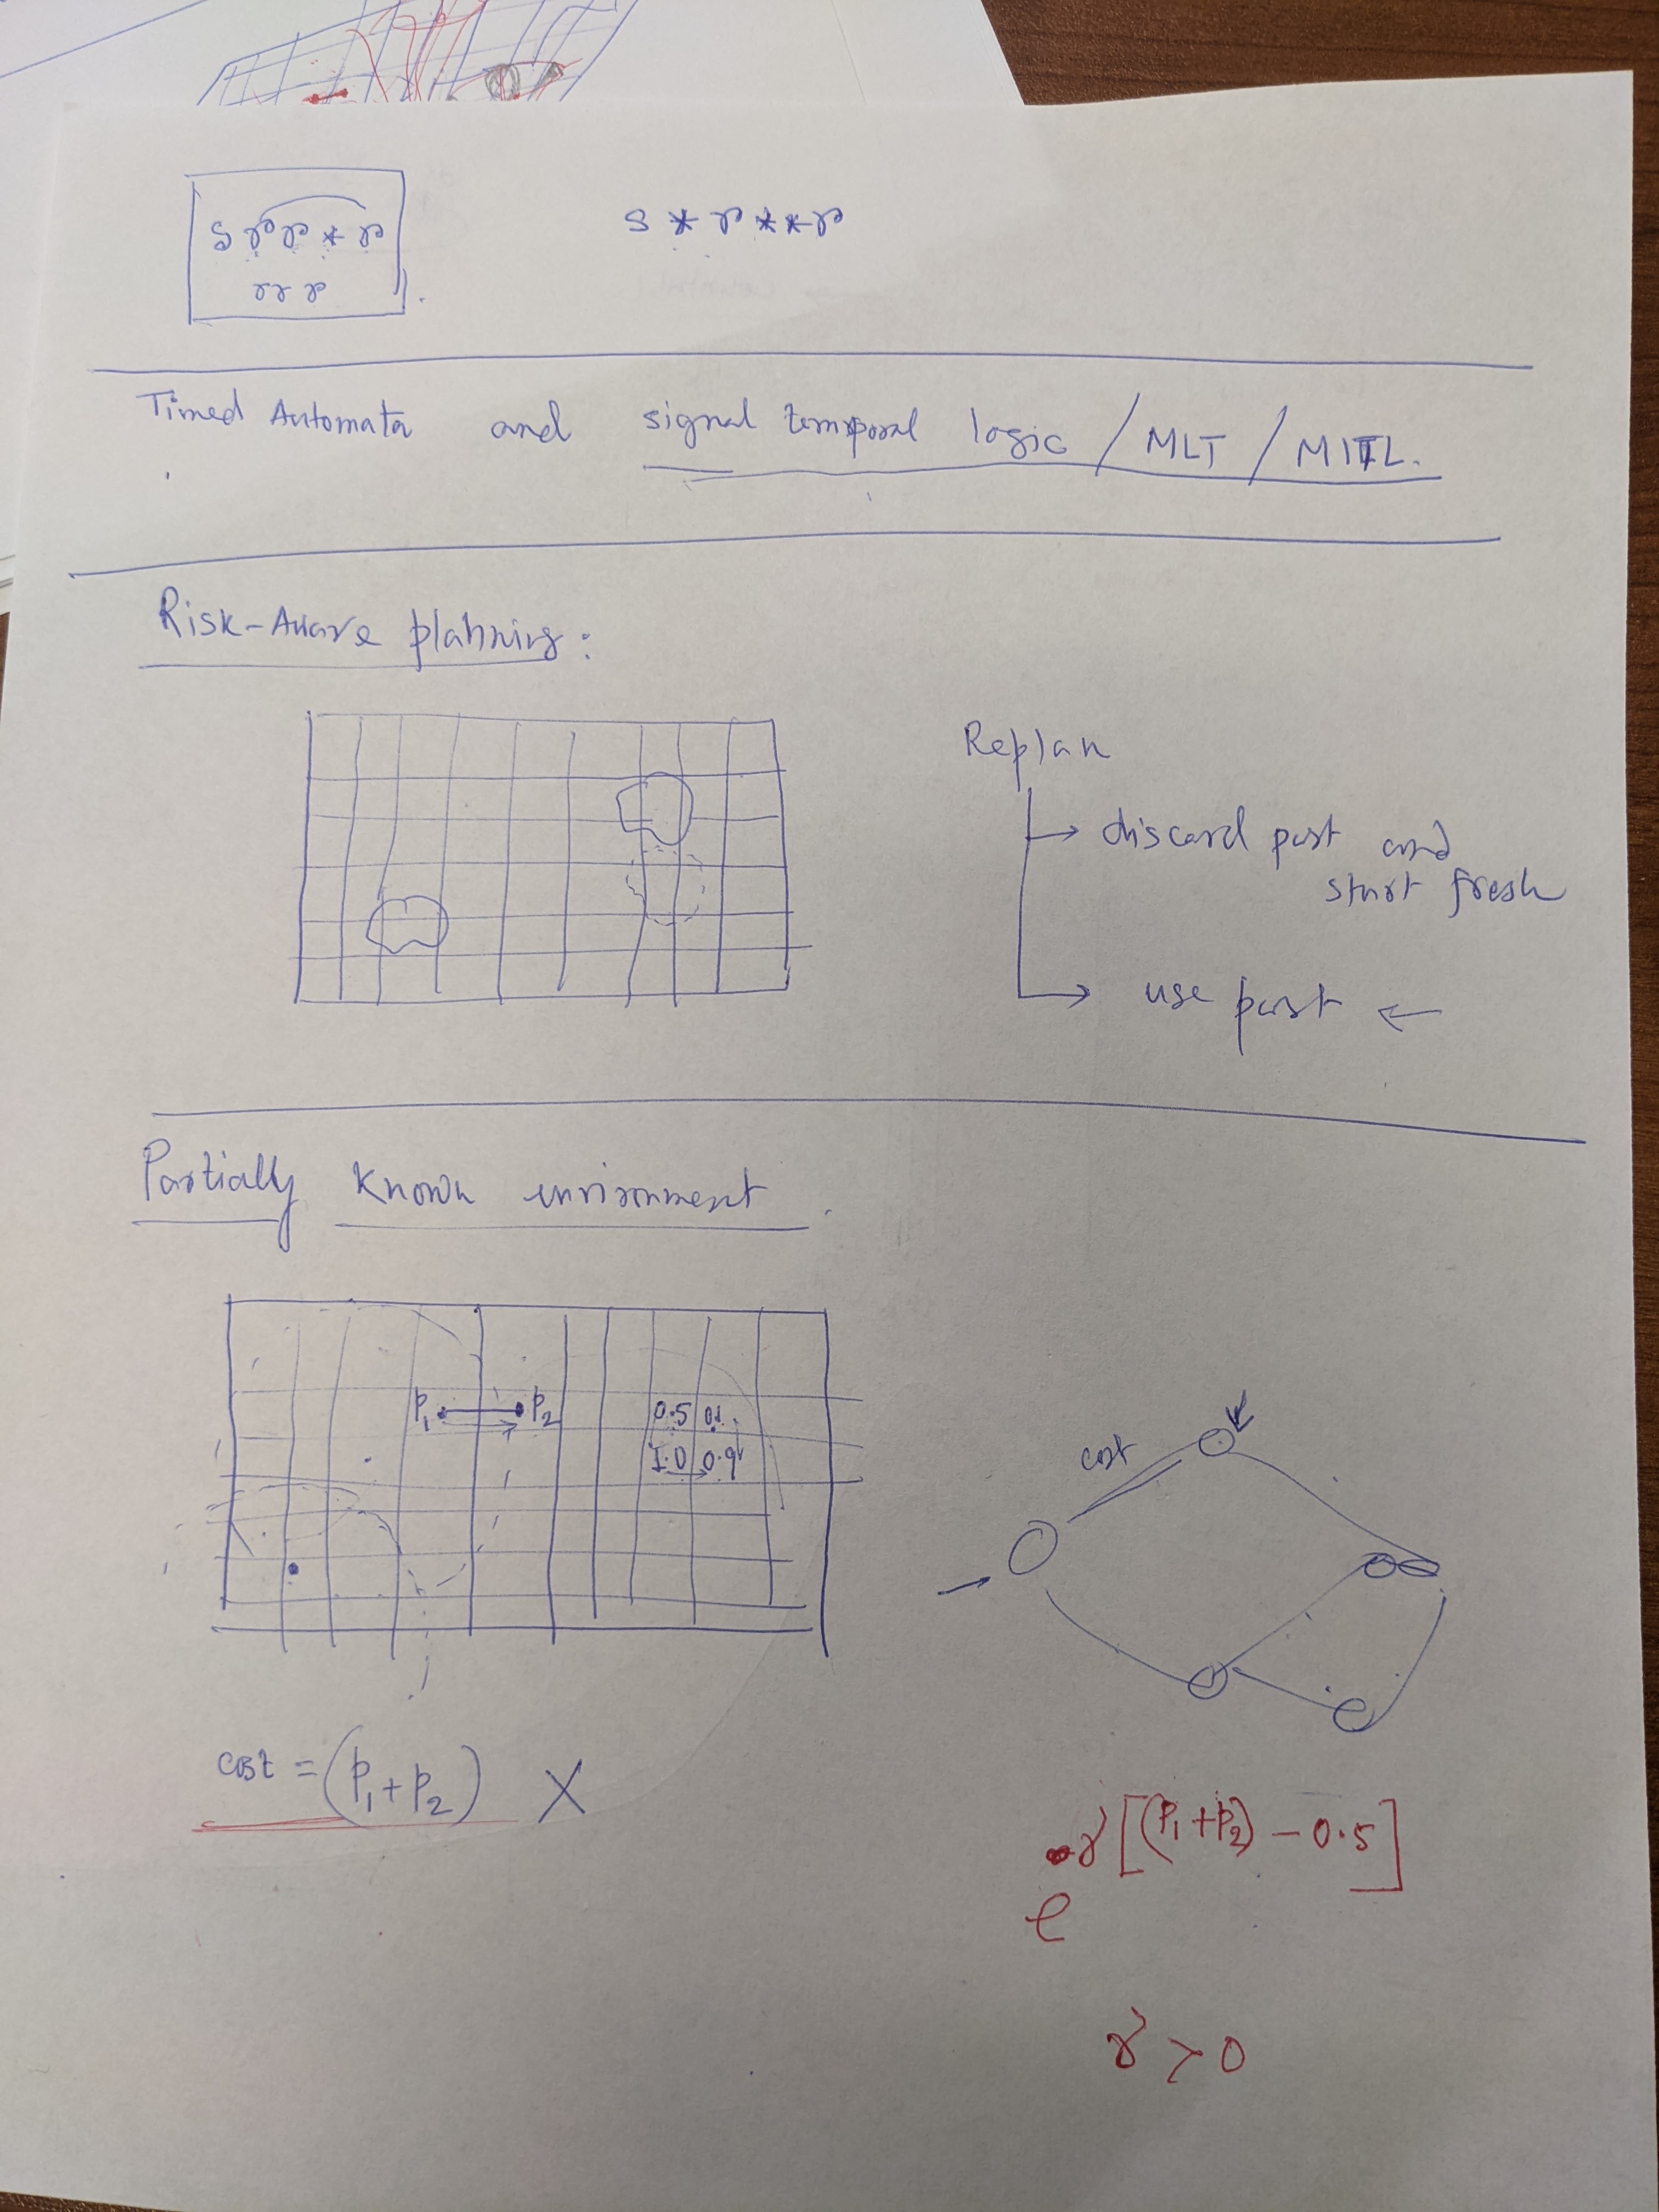 Timed Automata and signal temporal logic / MLT / MITL.
Risk-Aware planning:
Replan
discard past and
start fresh
use past
Partially Known environment.
P1 P2
0.5 0.1
1.0 0.9
cost
cost = (P1+P2) X
e^γ[(P1+P2) - 0.5]
γ > 0